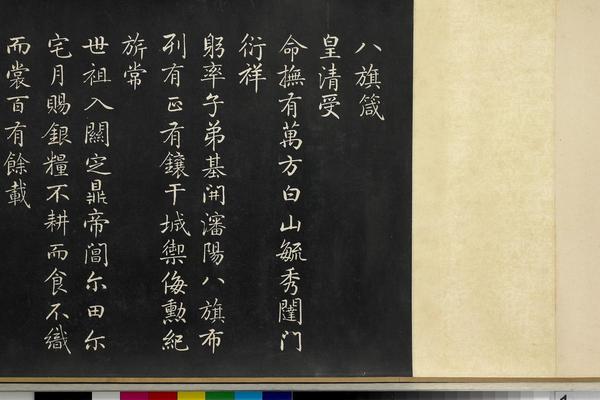 八旗箴
皇清受
命撫有萬方白山毓秀闥门
衍祥
躬率子弟基開瀋陽八旗布
列有正有鑲干城禦侮勳紀
旂常
世祖入關定鼎帝閶尔田尔
宅月賜銀糧不耕而食不織
而裳百有餘載